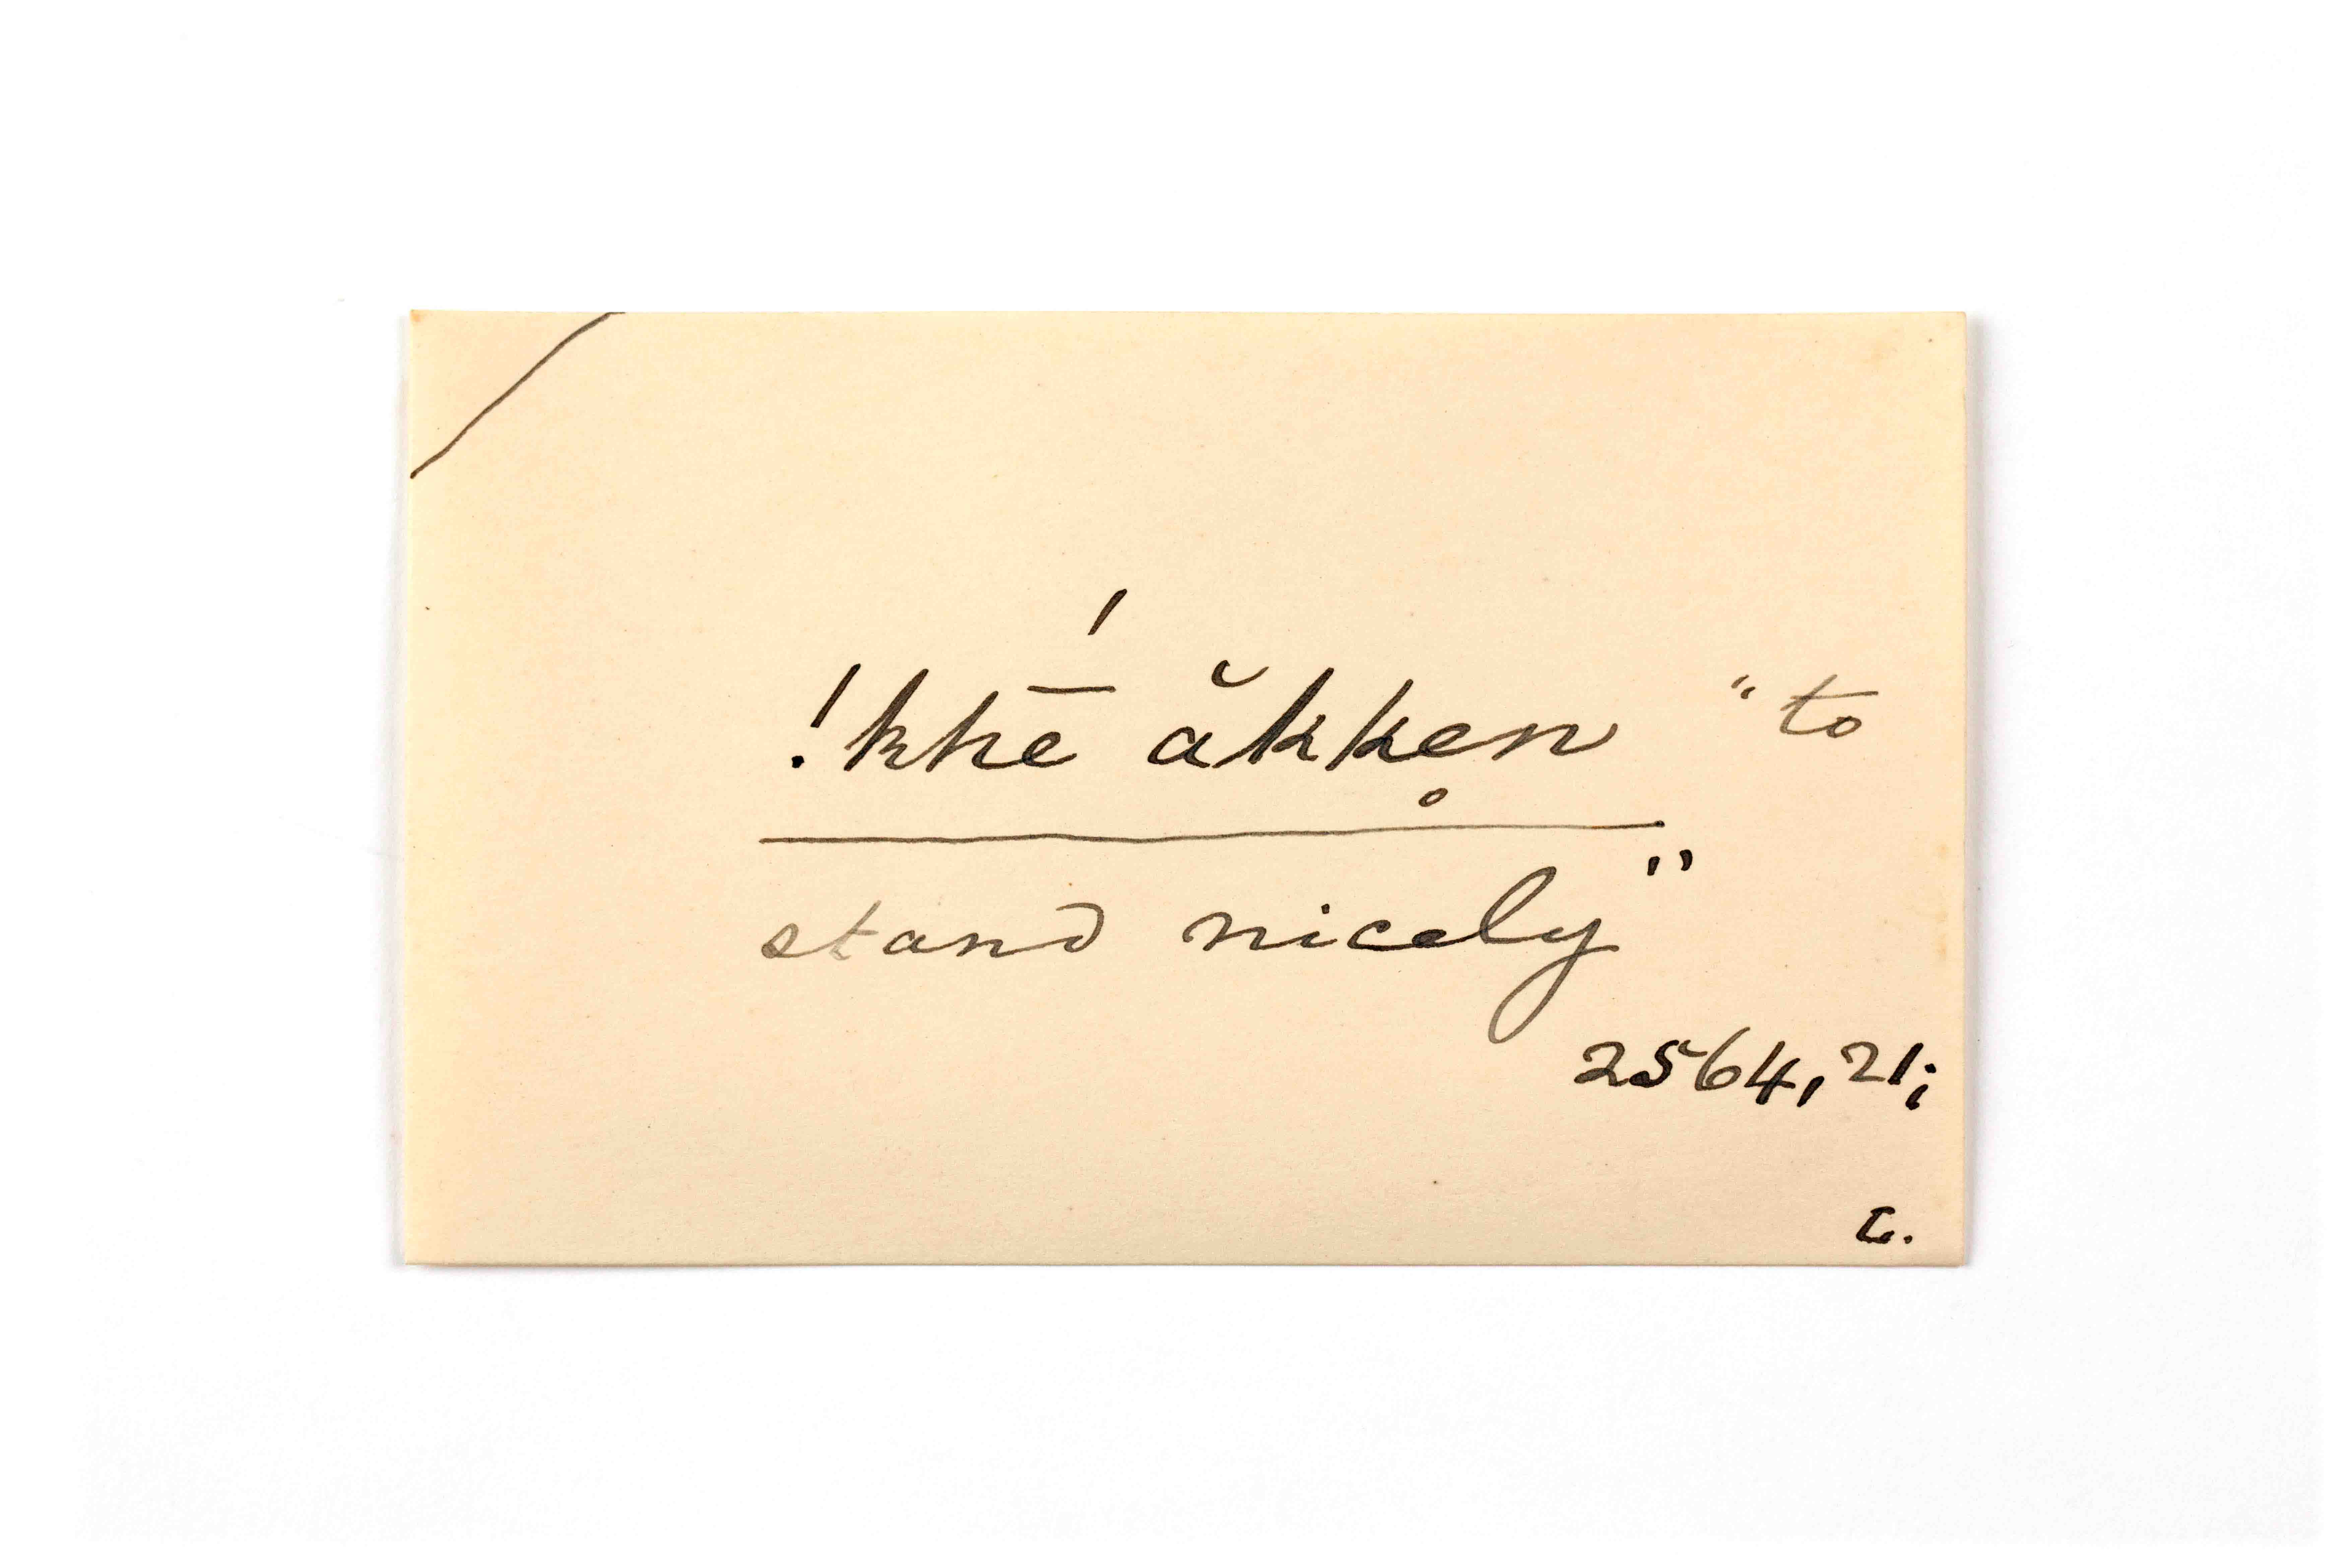 !khḗ ăkke̥n "to
stand nicely"
2564, 21;
L.